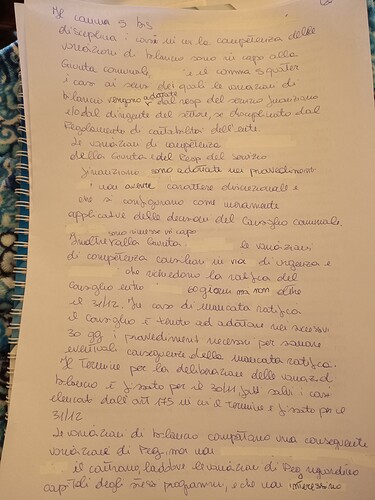 Il comma 5 bis
disciplina i casi in cui la competenza delle
variazioni di bilancio sono in capo alla
Giunta comunale, e il comma 5 quater
i casi ai sensi dei quali le variazioni di
bilancio vengono adottate dal resp del servizio finanziario
e/o dal dirigente del settore, se disciplinato dal
Regolamento di contabilità dell'ente.
Le variazioni di competenza
della Giunta e del Resp del servizio
finanziario sono adottate nei provvedimenti
non avente carattere discrezionale e
che si configurano come meramente
applicative delle decisioni del Consiglio comunale.
Inoltre sono rimesse in capo alla Giunta le variazioni
di competenza consiliari in via di urgenza e
che richiedono la ratifica del
Consiglio entro 60 giorni ma non oltre
il 31/12. In caso di mancata ratifica
il Consiglio è tenuto ad adottare nei successivi
30 gg i provvedimenti necessari per sanare
eventuali conseguenze della mancata ratifica.
Il Termine per la deliberazione delle variaz di
bilancio è fissato per il 30/11 fatti salvi i casi
elencati dall'art 175 in cui il termine è fissato per il
31/12
Le variazioni di bilancio comportano una conseguente
variazione di Peg, ma non
il contrario, laddove le variazioni di Peg riguardino
capitoli degli stessi programmi, e che non